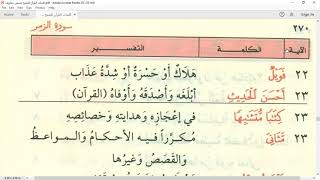 ٢٧٠ سورة الزمر
الآية الكلمة التفسير
٢٢ فَوَيْلٌ هَلَاكٌ أَوْ حَسْرَةٌ أَوْ شِدَّةُ عَذَابٍ
٢٣ أَحْسَنَ الْحَدِيثِ أَبْلَغَهُ وَأَصْدَقَهُ وَأَوْفَاهُ (القرآن)
٢٣ كِتَابًا مُتَشَابِهًا فِي إِعْجَازِهِ وَهِدَايَتِهِ وَخَصَائِصِهِ
٢٣ مَثَانِيَ مُكَرَّراً فِيهِ الْأَحْكَامُ وَالْمَوَاعِظُ
وَالْقَصَصُ وَغَيْرُهَا